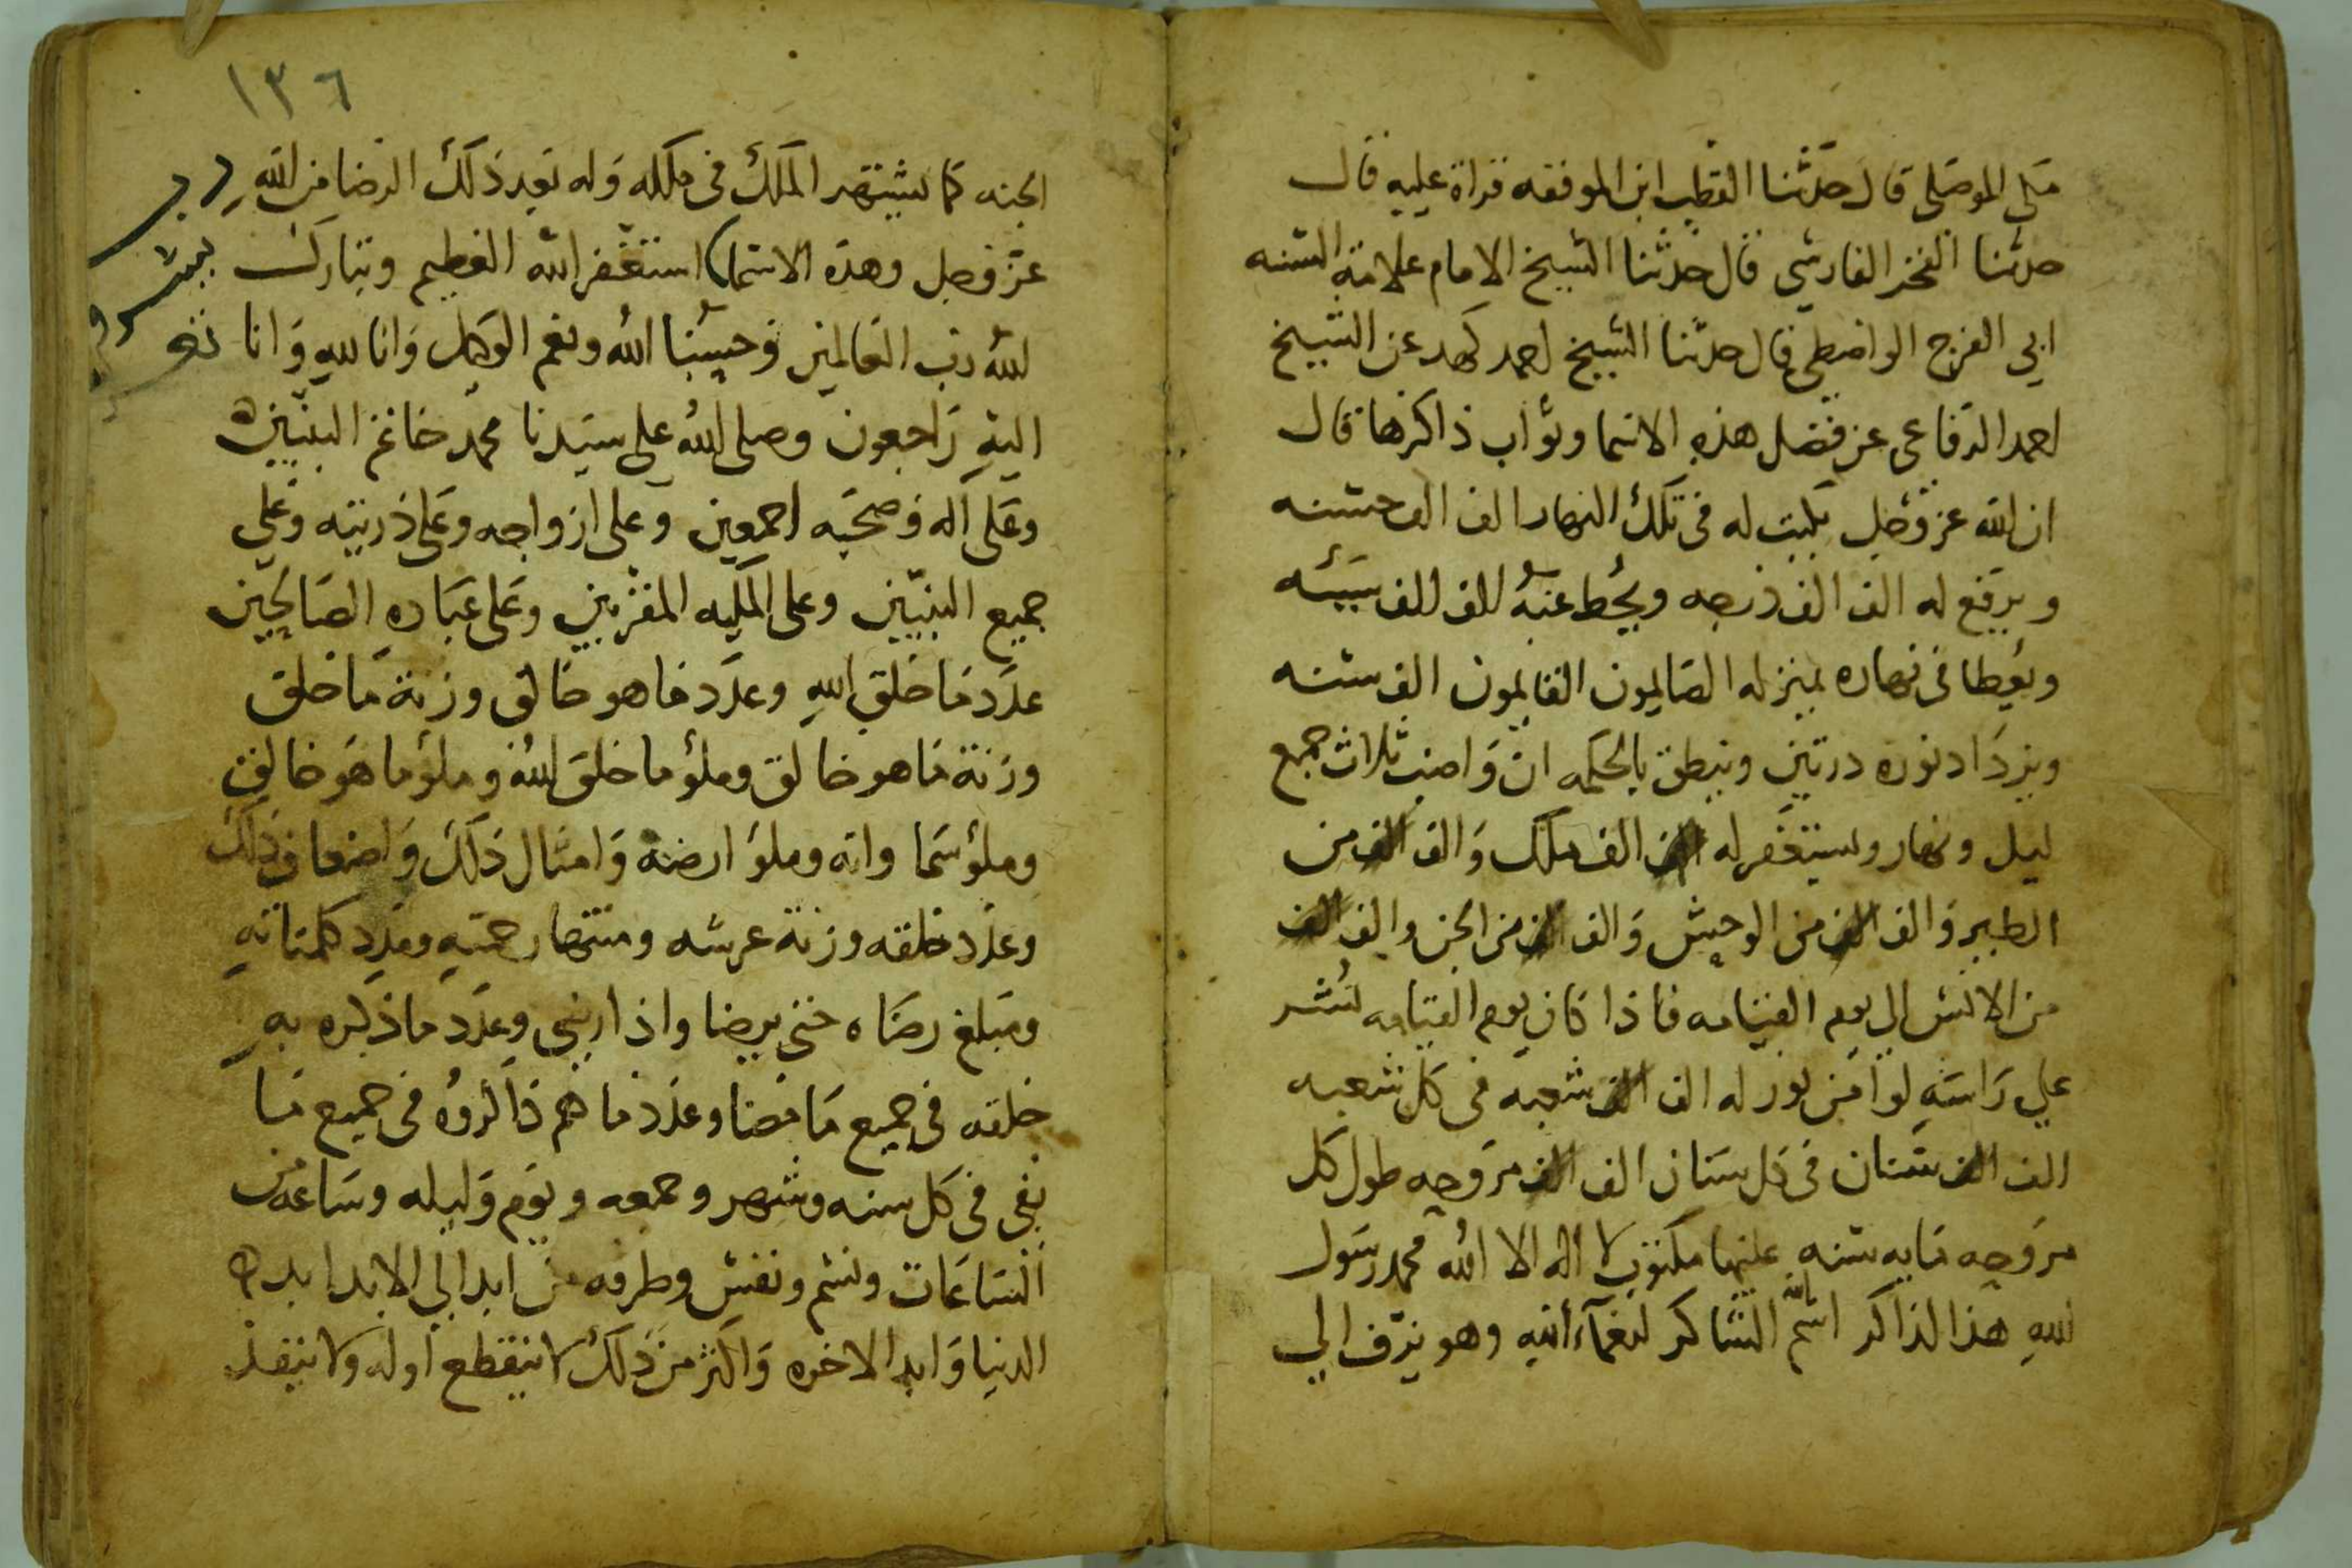 علي الموصلي قال حدثنا القطب ابن الموفقه قراة عليه قال
حدثنا الفخر الفارسي قال حدثنا الشيخ الامام علامة السنه
ابي الفرج الواسطي قال حدثنا الشيخ احمد كهد عن الشيخ
احمد الرفاعي عن فضل هذه الاسما وثواب ذاكرها قال
ان الله عز وجل يكتب له في تلك النهار الف الف حسنه
ويرفع له الف الف درجه ويحط عنه الف الف سيئه
ويعطا في نهاره بمنزله الصايمون القايمون الف سنه
ويزداد نوره درتين وينطق بالحكمه ان واضب ثلاث جمع
ليل ونهار ويستغفر له الف الف ملك والف الف من
الطير والف الف من الوحش والف الف من الجن والف الف
من الانس الي يوم القيامه فاذا كان يوم القيامه نُشر
علي راسه لوا من نور له الف الف شعبه في كل شعبه
الف الف سنان في كل سنان الف الف مروحه طول كل
مروحه مايه سنه عليها مكتوب لا اله الا الله محمد رسول
الله هذا الذاكر اسم الله الشاكر لنعمآء الله وهو يزف الي
١٣٦
الجنه كما يشتهر الملك في ملكه وله بعد ذلك الرضا من الله
عز وجل وهذه الاسما استغفر الله العظيم وتبارك
الله رب العالمين وحسبنا الله ونعم الوكيل وانا لله وانا
اليه راجعون وصلى الله على سيدنا محمد خاتم النبيين
وعلى آله وصحبه اجمعين وعلى ازواجه وعلى ذريته وعلي
جميع النبيين وعلى المليكه المقربين وعلى عباده الصالحين
عدد ما خلق الله وعدد ما هو خالق وزنة ما خلق
وزنة ما هو خالق وملؤ ما خلق الله وملؤ ما هو خالق
وملؤ سما واته وملؤ ارضه وامثال ذلك واضعاف ذلك
وعدد خلقه وزنة عرشه ومنتها رحمته ومدد كلماته
ومبلغ رضاه حتى يرضا واذا رضي وعدد ما ذكره به
خلقه في جميع ما مضا وعدد ما هم ذاكروه في جميع ما
بقي في كل سنه وشهر وجمعه ويوم وليله وساعه من
الساعات ونسم ونفس وطرفه من ابد الي الابد ابد
الدنيا وابد الاخره واكثر من ذلك لا ينقطع اوله ولا ينفد